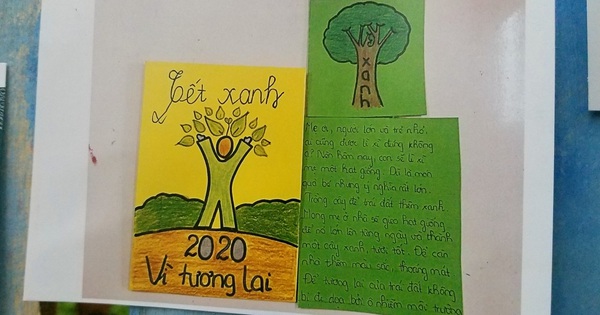 Tết xanh
2020
Vì tương lai
xanh
Mẹ ơi, người lớn và trẻ nhỏ
ai cũng được lì xì đúng không
ạ? Nên hôm nay, con sẽ lì xì
mẹ một hạt giống. Dù là món
quà bé nhưng ý nghĩa rất lớn.
Trồng cây để trái đất thêm xanh.
Mong mẹ ở nhà sẽ gieo hạt giống
để nó lớn lên từng ngày và thành
một cây xanh, tươi tốt. Để căn
nhà thêm màu sắc, thoáng mát
Để tương lai của trái đất không
bị đe dọa bởi ô nhiễm môi trường